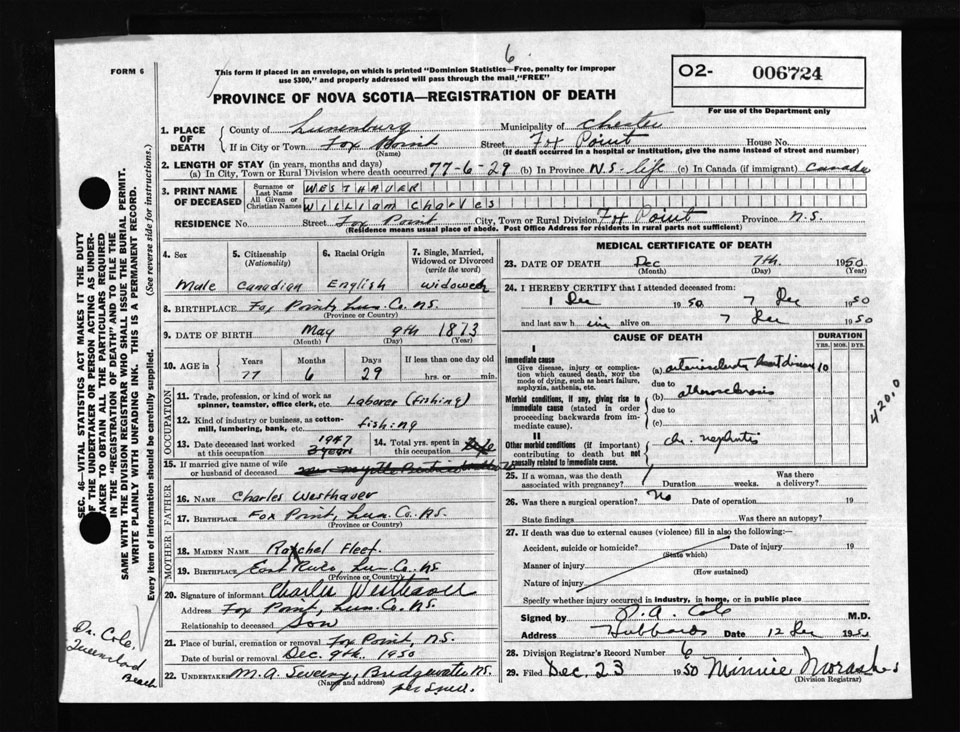 6
FORM 6
This form if placed in an envelope, on which is printed "Dominion Statistics—Free, penalty for improper
use $300," and properly addressed will pass through the mail "FREE"
O2- 006724
For use of the Department only
PROVINCE OF NOVA SCOTIA—REGISTRATION OF DEATH
1. PLACE OF DEATH
County of Lunenburg Municipality of Chester
If in City or Town Fox Point Street Fox Point House No.
(Name) (If death occurred in a hospital or institution, give the name instead of street and number)
2. LENGTH OF STAY (in years, months and days)
(a) In City, Town or Rural Division where death occurred 77-6-29 (b) In Province N.S.-life (c) In Canada (if immigrant) Canada
3. PRINT NAME OF DECEASED
Surname or Last Name WESTHAVER
All Given or Christian Names WILLIAM Charles
RESIDENCE No. Street Fox Point City, Town or Rural Division Fox Point Province N.S.
(Residence means usual place of abode. Post Office Address for residents in rural parts not sufficient)
4. Sex
Male
5. Citizenship (Nationality)
Canadian
6. Racial Origin
English
7. Single, Married, Widowed or Divorced (write the word)
widowed
8. BIRTHPLACE Fox Point, Lun. Co. N.S.
(Province or Country)
9. DATE OF BIRTH May 9th 1873
(Month) (Day) (Year)
10. AGE in Years Months Days If less than one day old
77 6 29 hrs. or min.
OCCUPATION
11. Trade, profession, or kind of work as
spinner, teamster, office clerk, etc. Laborer (fishing)
12. Kind of industry or business, as cotton-
mill, lumbering, bank, etc. fishing
13. Date deceased last worked
at this occupation 1947 3 years
14. Total yrs. spent in
this occupation life
15. If married give name of wife
or husband of deceased
FATHER
16. NAME Charles Westhaver
17. BIRTHPLACE Fox Point, Lun. Co. N.S.
(Province or Country)
MOTHER
18. MAIDEN NAME Rachel Fleet.
19. BIRTHPLACE East River, Lun. Co. N.S
(Province or Country)
20. Signature of informant Charles Westhaver
Address Fox Point, Lun. Co. N.S.
Relationship to deceased Son
21. Place of burial, cremation or removal Fox Point, N.S.
Date of burial or removal Dec. 9th. 1950
22. UNDERTAKER M.A. Bridgewater N.S.
(Name and address)
MEDICAL CERTIFICATE OF DEATH
23. DATE OF DEATH Dec 7th 1950
(Month) (Day) (Year)
24. I HEREBY CERTIFY that I attended deceased from:
1 Dec 1950 7 Dec 1950
and last saw him alive on 7 Dec 1950
CAUSE OF DEATH
DURATION
YRS. MOS. DYS.
I
Immediate cause
Give disease, injury or complica-
tion which caused death, NOT the
mode of dying, such as heart failure,
asphyxia, asthenia, etc.
(a) arteriosclerotic heart disease 10
due to
Morbid conditions, if any, giving rise to
immediate cause (stated in order
proceeding backwards from im-
mediate cause).
(b) atherosclerosis
due to
(c)
II
Other morbid conditions (if important)
contributing to death but not
causally related to immediate cause.
ch. nephritis
420.0
25. If a woman, was the death
associated with pregnancy? Duration weeks. Was there
a delivery?
26. Was there a surgical operation? No Date of operation 19
State findings Was there an autopsy?
27. If death was due to external causes (violence) fill in also the following:—
Accident, suicide or homicide? Date of injury 19
(State which)
Manner of injury
(How sustained)
Nature of injury
Specify whether injury occurred in industry, in home, or in public place
Signed by D.A. Cole M.D.
Address Hubbards Date 12 Dec 1950
28. Division Registrar's Record Number 6
29. Filed Dec. 23 1950 Minnie
(Division Registrar)
SEC. 46—VITAL STATISTICS ACT MAKES IT THE DUTY
OF THE UNDERTAKER OR PERSON ACTING AS UNDER-
TAKER TO OBTAIN ALL THE PARTICULARS REQUIRED
IN THE "REGISTRATION OF DEATH" AND TO FILE THE
SAME WITH THE DIVISION REGISTRAR WHO SHALL ISSUE THE BURIAL PERMIT.
WRITE PLAINLY WITH UNFADING INK. THIS IS A PERMANENT RECORD.
Every item of information should be carefully supplied. (See reverse side for instructions.)
Dr. Cole,
Queensland
Beach